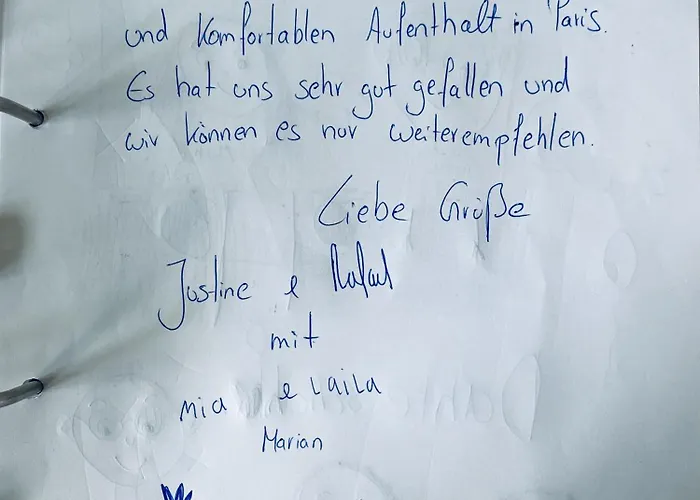 und Komfortablen Aufenthalt in Paris.
Es hat uns sehr gut gefallen und
wir können es nur weiterempfehlen.
Liebe Grüße
Justine & Rafael
mit
Mia & Laila
Marian